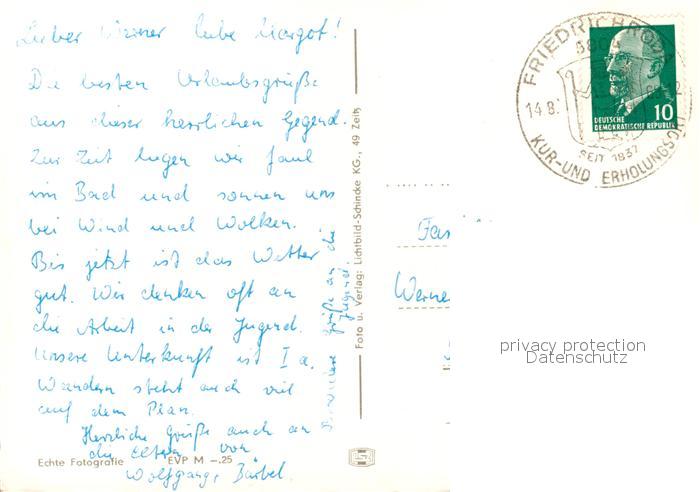 Lieber Werner liebe Margot!
Die besten Urlaubsgrüße
aus dieser herrlichen Gegend.
Zur Zeit liegen wir faul
im Bad und sonnen uns
bei Wind und Wolken.
Bis jetzt ist das Wetter
gut. Wir denken oft an
die Arbeit in der Jugend.
Unsere Unterkunft ist I a.
Wandern steht auch viel
auf dem Plan.
Herzliche Grüße auch an
die Eltern von
Wolfgang, Bärbel.
Grüße an die
Jugend.
Echte Fotografie
EVP M –.25
Foto u. Verlag: Lichtbild-Schincke KG., 49 Zeitz
Fa
Werne
FRIEDRICHRODA
580
14.8.
SEIT 1837
KUR-UND ERHOLUNGSORT
10
DEUTSCHE
DEMOKRATISCHE REPUBLIK
privacy protection
Datenschutz